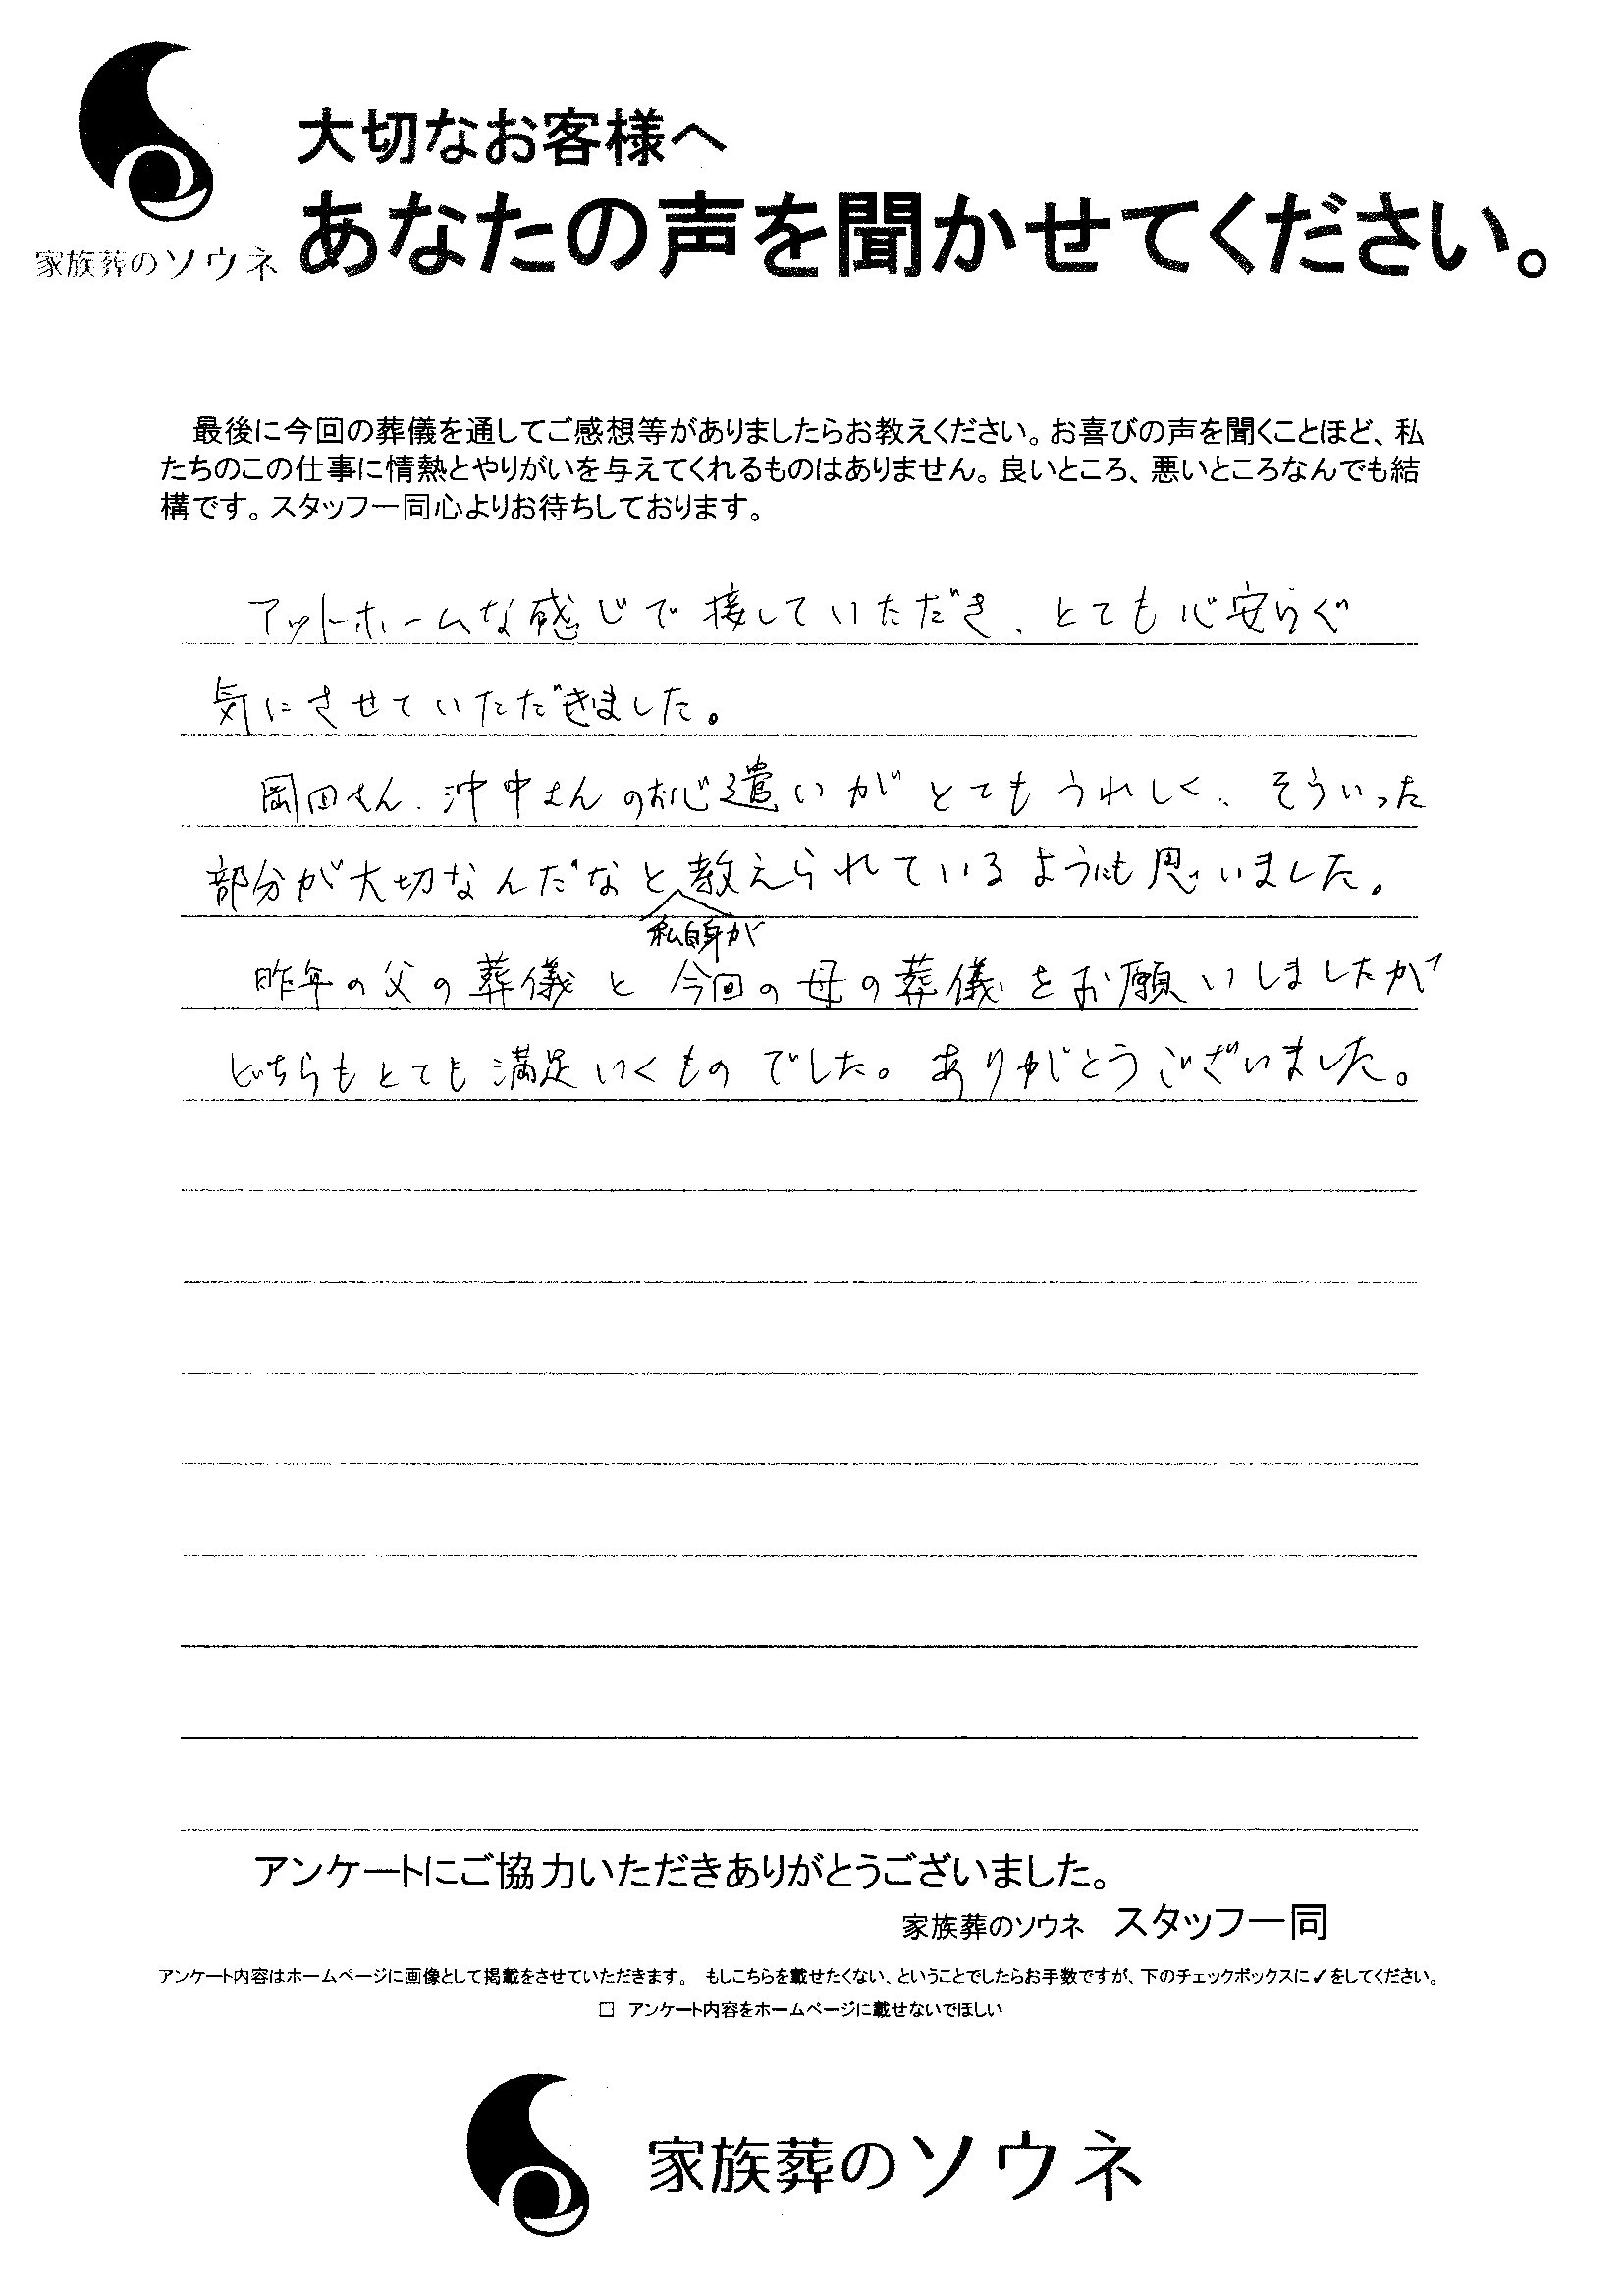 大切なお客様へ
あなたの声を聞かせてください。
家族葬のソウネ
最後に今回の葬儀を通してご感想等がありましたらお教えください。お喜びの声を聞くことほど、私
たちのこの仕事に情熱とやりがいを与えてくれるものはありません。良いところ、悪いところなんでも結
構です。スタッフ一同心よりお待ちしております。
アットホームな感じで接していただき、とても心安らぐ
気にさせていただきました。
岡田さん、沖中さんのお心遣いがとてもうれしく、そういった
部分が大切なんだなと教えられているようにも思いました。
私自身が
昨年の父の葬儀と今回の母の葬儀をお願いしましたが
どちらもとても満足いくものでした。ありがとうございました。
アンケートにご協力いただきありがとうございました。
家族葬のソウネ スタッフ一同
アンケート内容はホームページに画像として掲載をさせていただきます。 もしこちらを載せたくない、ということでしたらお手数ですが、下のチェックボックスに✓をしてください。
□ アンケート内容をホームページに載せないでほしい
家族葬のソウネ